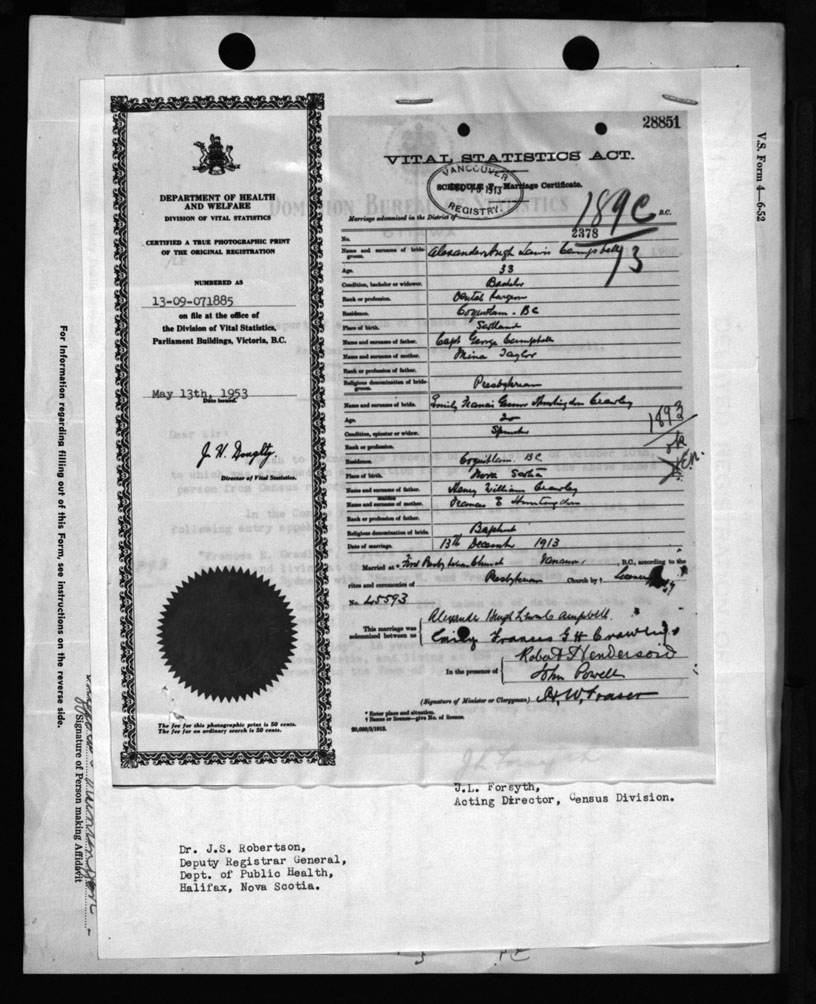 V.S. Form 4—6-52
For information regarding filling out of this Form, see instructions on the reverse side.
Signature of Person making Affidavit
DEPARTMENT OF HEALTH
AND WELFARE
DIVISION OF VITAL STATISTICS
CERTIFIED A TRUE PHOTOGRAPHIC PRINT
OF THE ORIGINAL REGISTRATION
NUMBERED AS
13-09-071885
on file at the office of
the Division of Vital Statistics,
Parliament Buildings, Victoria, B.C.
May 13th, 1953
Date issued.
Director of Vital Statistics.
The fee for this photographic print is 50 cents.
The fee for an ordinary search is 50 cents.
28851
VITAL STATISTICS ACT.
VANCOUVER
1913
REGISTRY.
Marriage Certificate.
Marriage solemnized in the District of
189C
B.C.
No. 2378
13
Name and surname of bridegroom. Alexander Hugh Lewis Campbell
Age. 33
Condition, bachelor or widower. Bachelor
Rank or profession. Dental Surgeon
Residence. Coquitlam. BC
Place of birth. Scotland
Name and surname of father. Capt George Campbell
Name and surname of mother. Mina Taylor
Rank or profession of father.
Religious denomination of bridegroom. Presbyterian
Name and surname of bride. Emily Francis Huntingdon Crawley
Age. 20
Condition, spinster or widow. Spinster
Rank or profession.
Residence. Coquitlam. BC
Place of birth. Nova Scotia
Name and surname of father. Henry William Crawley
maiden
Name and surname of mother. Frances E Huntingdon
Rank or profession of father.
Religious denomination of bride. Baptist
Date of marriage. 13th December 1913
1893
Married at * Presbyterian Church B.C., according to the
rites and ceremonies of Presbyterian Church by † Licence
No. 45593
This marriage was
solemnized between us
Alexander Hugh Lewis Campbell.
Emily Frances G H Crawley
In the presence of
Robert Henderson
John Powell
(Signature of Minister or Clergyman)
* Enter place and situation.
† Banns or license—give No. of license.
J.L. Forsyth,
Acting Director, Census Division.
Dr. J.S. Robertson,
Deputy Registrar General,
Dept. of Public Health,
Halifax, Nova Scotia.